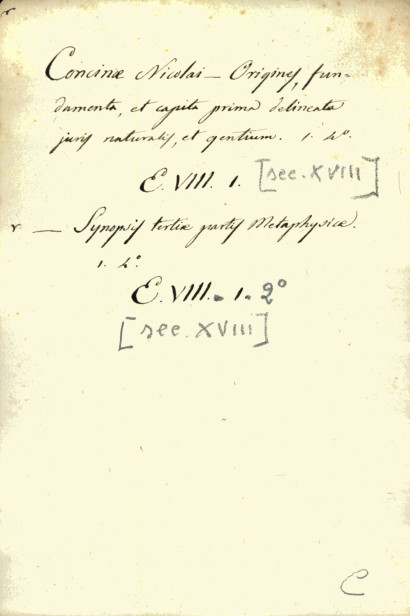 r
Concinæ Nicolai — Origines, fun-
damenta, et capita prima delineata
juris naturalis, et gentium. 1. 4°.
E. VIII. 1. [sec. XVIII]
r — Synopsis tertiæ partis Metaphysicæ.
1. 4°.
E. VIII. - 1 - 2°
[sec. XVIII]
C